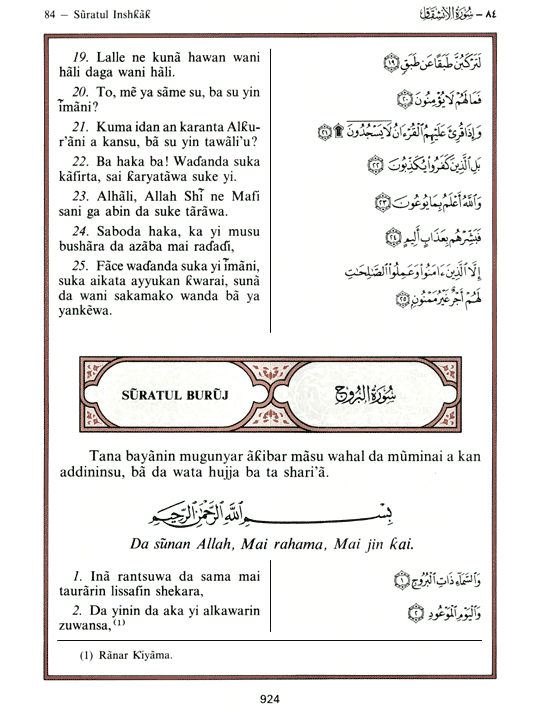 84 — Sũratul Inshƙãƙ
٨٤ – سُورَةُ الانشِقَاقِ
19. Lalle ne kunã hawan wani
hãli daga wani hãli.
20. To, mẽ ya sãme su, ba su yin
ĩmãni?
21. Kuma idan an karanta Alƙu-
r’ãni a kansu, bã su yin tawãli’u?
22. Ba haka ba! Waɗanda suka
kãfirta, sai ƙaryatãwa suke yi.
23. Alhãli, Allah Shĩ ne Mafi
sani ga abin da suke tãrãwa.
24. Saboda haka, ka yi musu
bushãra da azãba mai raɗaɗi,
25. Fãce waɗanda suka yi ĩmãni,
suka aikata ayyukan ƙwarai, sunã
da wani sakamako wanda bã ya
yankẽwa.
لَتَرْكَبُنَّ طَبَقًا عَن طَبَقٍ ﴿١٩﴾
فَمَا لَهُمْ لَا يُؤْمِنُونَ ﴿٢٠﴾
وَإِذَا قُرِئَ عَلَيْهِمُ ٱلْقُرْءَانُ لَا يَسْجُدُونَ ۩ ﴿٢١﴾
بَلِ ٱلَّذِينَ كَفَرُوا۟ يُكَذِّبُونَ ﴿٢٢﴾
وَٱللَّهُ أَعْلَمُ بِمَا يُوعُونَ ﴿٢٣﴾
فَبَشِّرْهُم بِعَذَابٍ أَلِيمٍ ﴿٢٤﴾
إِلَّا ٱلَّذِينَ ءَامَنُوا۟ وَعَمِلُوا۟ ٱلصَّٰلِحَٰتِ
لَهُمْ أَجْرٌ غَيْرُ مَمْنُونٍ ﴿٢٥﴾
SŨRATUL BURŨJ
سُورَةُ البُرُوجِ
Tana bayãnin mugunyar ãƙibar mãsu wahal da mũminai a kan
addininsu, bã da wata hujja ba ta shari’ã.
بِسْمِ ٱللَّهِ ٱلرَّحْمَٰنِ ٱلرَّحِيمِ
Da sũnan Allah, Mai rahama, Mai jin ƙai.
1. Inã rantsuwa da sama mai
taurãrin lissafin shekara,
2. Da yinin da aka yi alkawarin
zuwansa,(1)
وَٱلسَّمَآءِ ذَاتِ ٱلْبُرُوجِ ﴿١﴾
وَٱلْيَوْمِ ٱلْمَوْعُودِ ﴿٢﴾
(1) Rãnar Ƙiyãma.
924